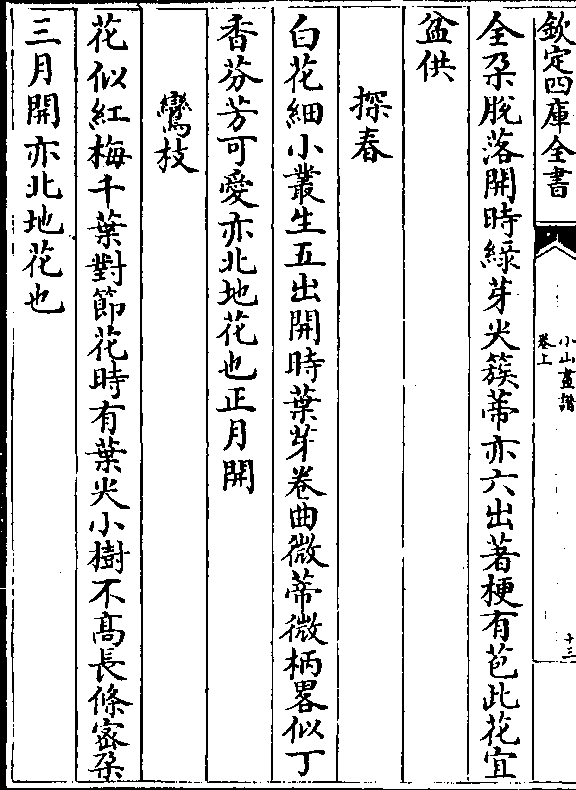 欽定四庫全書
小山畫譜
卷上
十三
全朶脫落開時綠芽尖簇蒂亦六出著梗有苞此花宜
盆供
探春
白花細小叢生五出開時葉芽卷曲微蒂微柄畧似丁
香芬芳可愛亦北地花也正月開
鸞枝
花似紅梅千葉對節花時有葉尖小樹不髙長條宻朶
三月開亦北地花也